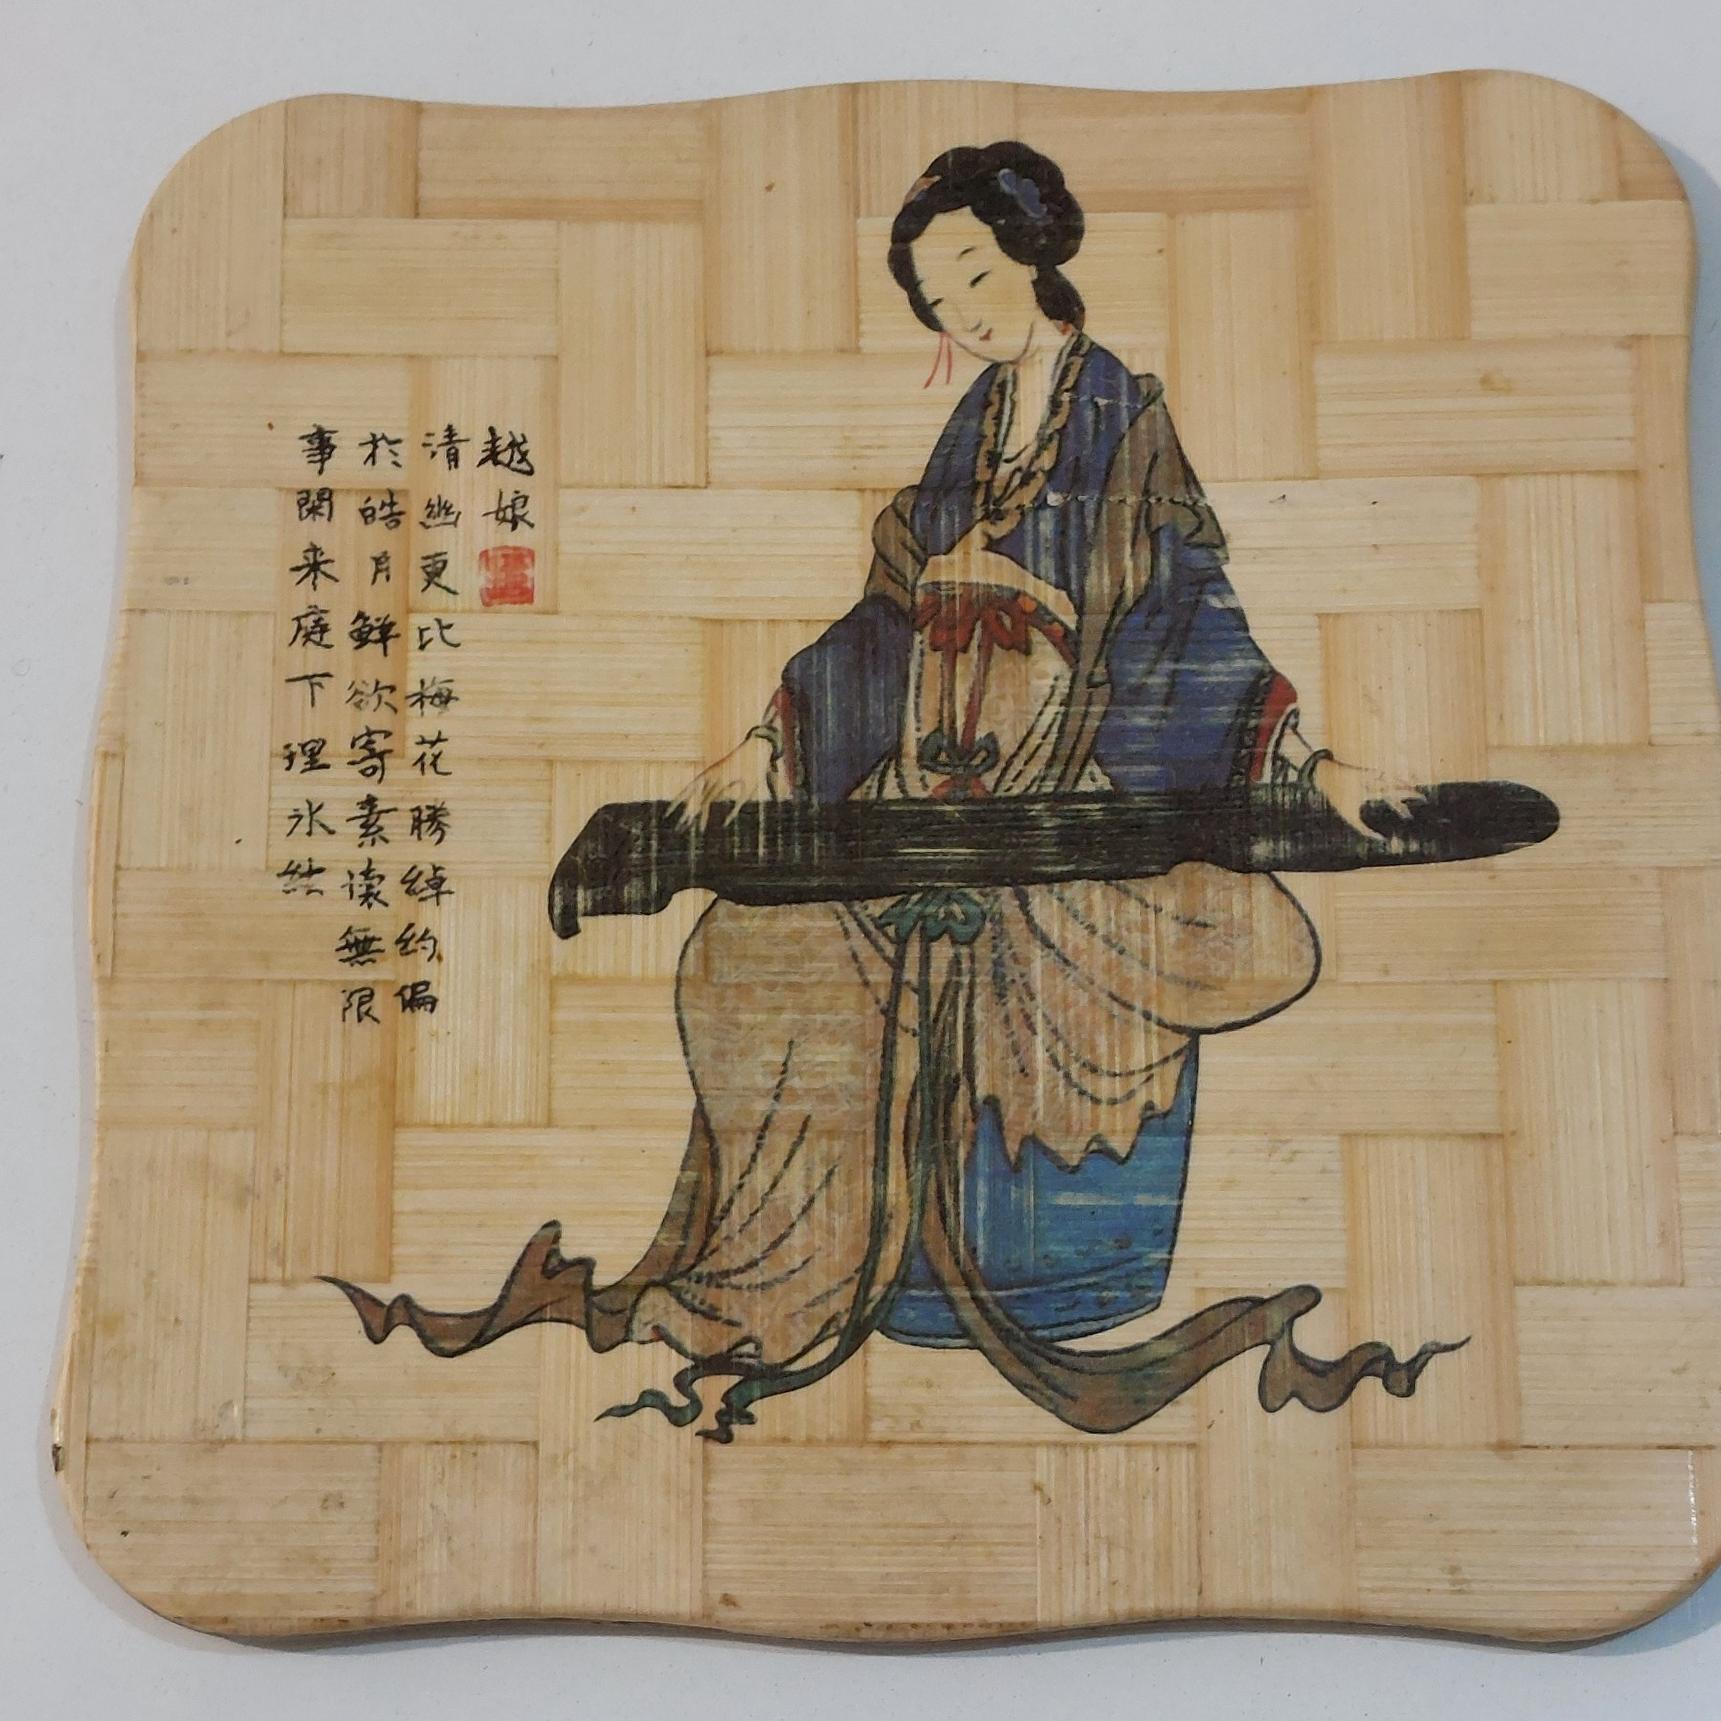 越娘
清幽更比梅花勝綽約偏
於皓月鮮欲寄素懷無限
事閑来庭下理氷絃